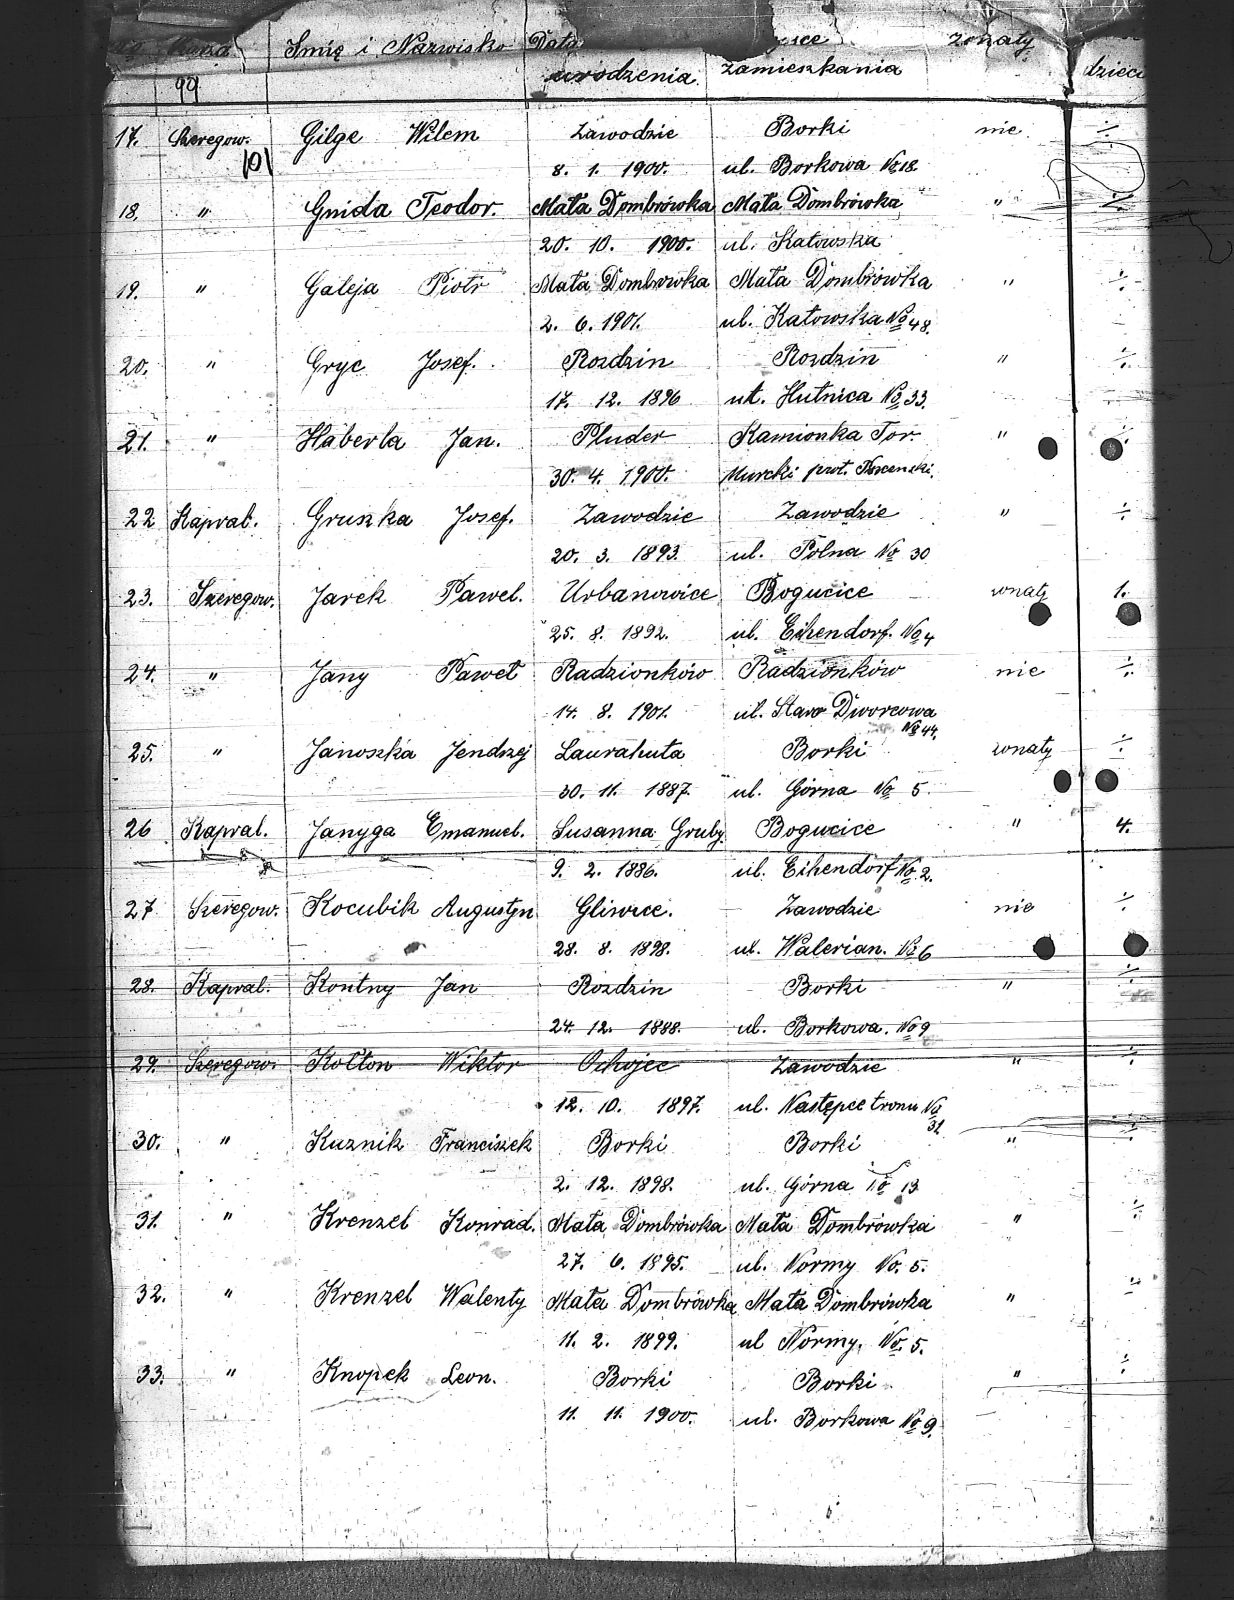 Imię i Nazwisko Data żonaty
urodzenia. zamieszkania dzieci
99
17. Szeregow. Gilge Wilem Zawodzie Borki nie ÷
101 8. 1. 1900. ul. Borkowa No 18.
18. " Gnida Teodor. Mała Dombrówka Mała Dombrówka " ÷
20. 10. 1900. ul. Katowska
19. " Galeja Piotr Mała Dombrówka Mała Dombrówka " ÷
2. 6. 1901. ul. Katowska No 48.
20. " Gryc Josef. Rozdzin Rozdzin " ÷
17. 12. 1896 ul. Hutnica No 33.
21. " Haberla Jan. Pluder Kamionka Tor. " ÷
30. 4. 1900. Murcki
22 Kapral. Gruszka Josef. Zawodzie Zawodzie " ÷
20. 3. 1893. ul. Polna No 30
23. Szeregow. Jarek Pawel. Urbanowice Bogucice żonaty 1.
25. 8. 1892. ul. Eihendorf. No 4
24. " Jany Paweł Radzionków Radzionków nie ÷
14. 8. 1901. ul. Staro Dworcowa
No 44.
25. " Janoszka Jendrzej Laurahuta Borki żonaty ÷
30. 11. 1887. ul. Górna No 5.
26 Kapral. Janyga Emanuel. Susanna Gruby. Bogucice " 4.
9. 2. 1886. ul. Eihendorf No 2.
27 Szeregow. Kocubik Augustyn Gliwice. Zawodzie nie ÷
28. 8. 1898. ul. Walerian. No 6
28. Kapral. Kontny Jan Rozdzin Borki " ÷
24. 12. 1888. ul. Borkowa. No 9
29. Szeregow. Kołton Wiktor Ochojec Zawodzie " ÷
12. 10. 1897. ul. Następce tronu No
31.
30. " Kuznik Franciszek Borki Borki " ÷
2. 12. 1898. ul. Górna No 13
31. " Krenzel Konrad. Mała Dombrówka Mała Dombrówka " ÷
27. 6. 1895. ul. Normy No. 5.
32. " Krenzel Walenty Mała Dombrówka Mała Dombrówka " ÷
11. 2. 1899. ul Normy, No. 5.
33. " Knopek Leon. Borki Borki " ÷
11. 11. 1900. ul. Borkowa No 9.